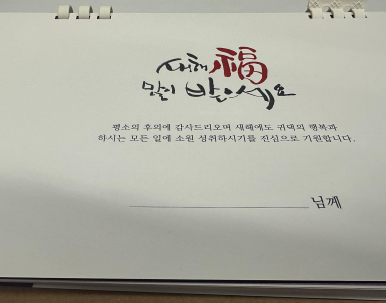 새해 福
많이 받으세요
평소의 후의에 감사드리오며 새해에도 귀댁의 행복과
하시는 모든 일에 소원 성취하시기를 진심으로 기원합니다.
님께